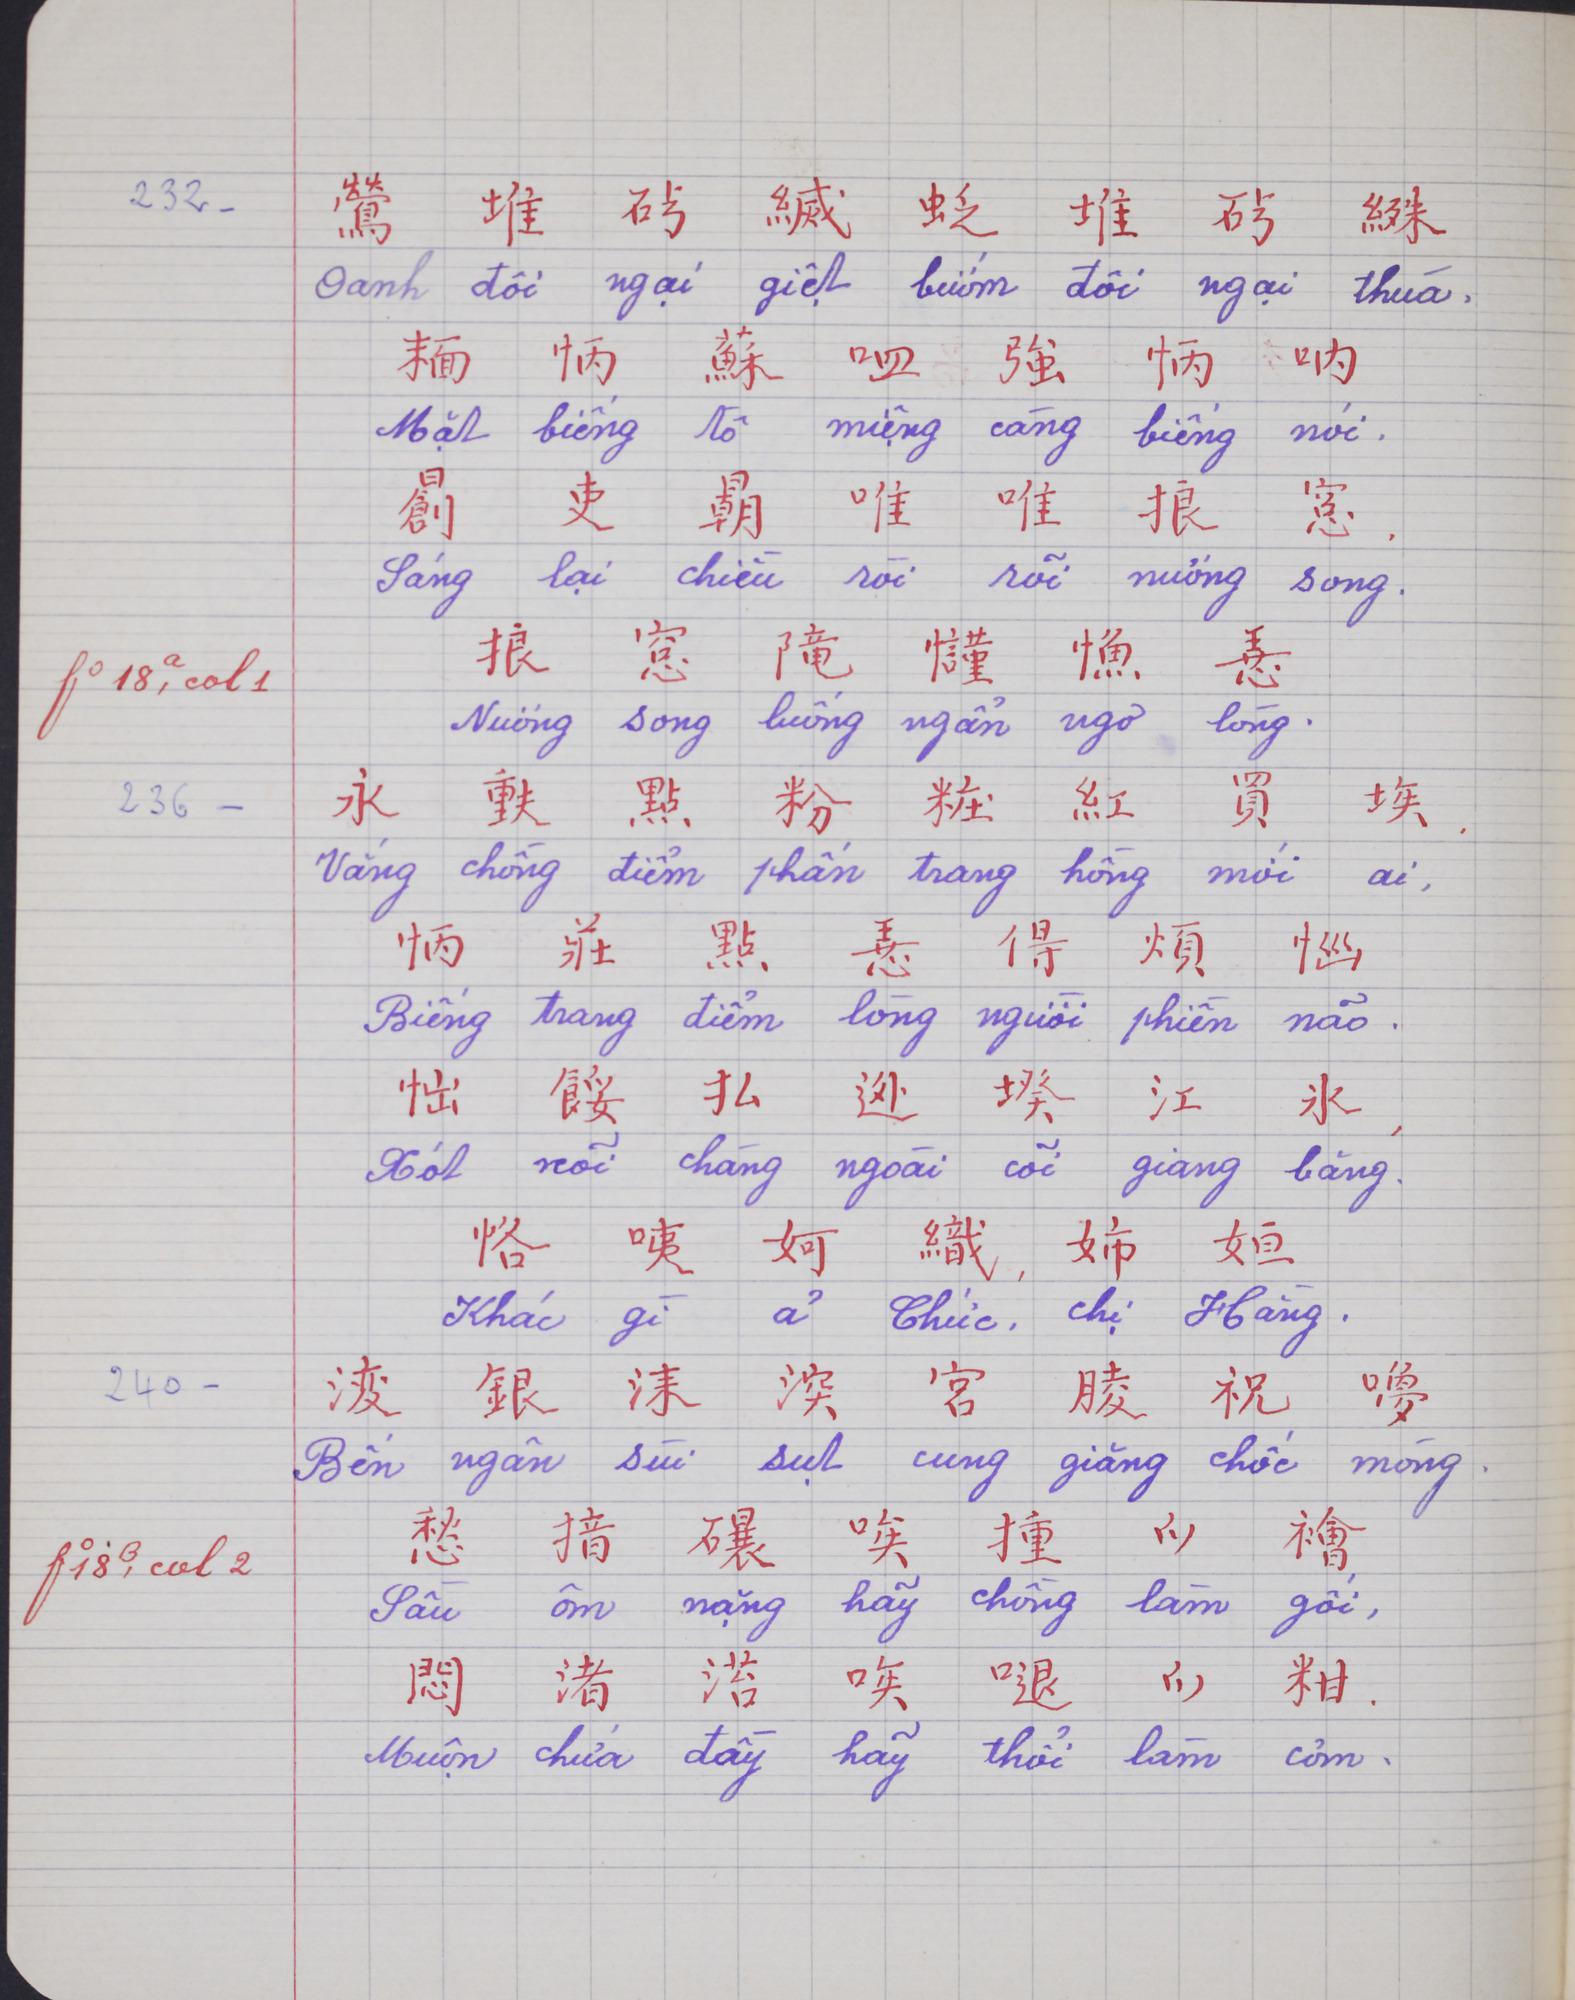 232- 鶯 堆 𥐍 緘 𧊉 堆 𥐍 絑
Oanh đôi ngại giệt bướm đôi ngại thuà.
𩈘 怲 蘇 𠰘 強 怲 吶
Mặt biếng tô miệng càng biếng nói.
𠓇 吏 𣋂 唯 唯 挸 窓.
Sáng lại chiều ròi rõi nương song.
fº 18ª, col 1 挸 窓 隴 慬 𢠐 𢚸
Nương song luống ngẩn ngơ lòng.
236 - 永 𫯳 點 粉 粧 紅 買 埃.
Vắng chồng điểm phấn trang hồng mới ai,
怲 莊 點 𢚸 得 煩 惱
Biếng trang điểm lòng người phiền não.
怞 餒 払 𨒺 𡎝 江 氷,
Xót nỗi chàng ngoài cõi giang băng.
恪 咦 妸 織, 姉 姮
Khác gì ả Chức, chị Hằng.
240 - 㴜 銀 洡 湥 宮 𦝄 祝 𠽋
Bến ngân sùi sụt cung giăng chốc mòng.
fº 18ᵇ, col 2 愁 揞 𥗾 唉 㨂 𫜵 襘
Sầu ôm nặng hãy chồng làm gối,
悶 渚 𣹓 唉 𠿿 𫜵 粓.
Muộn chứa đầy hãy thổi làm cơm.